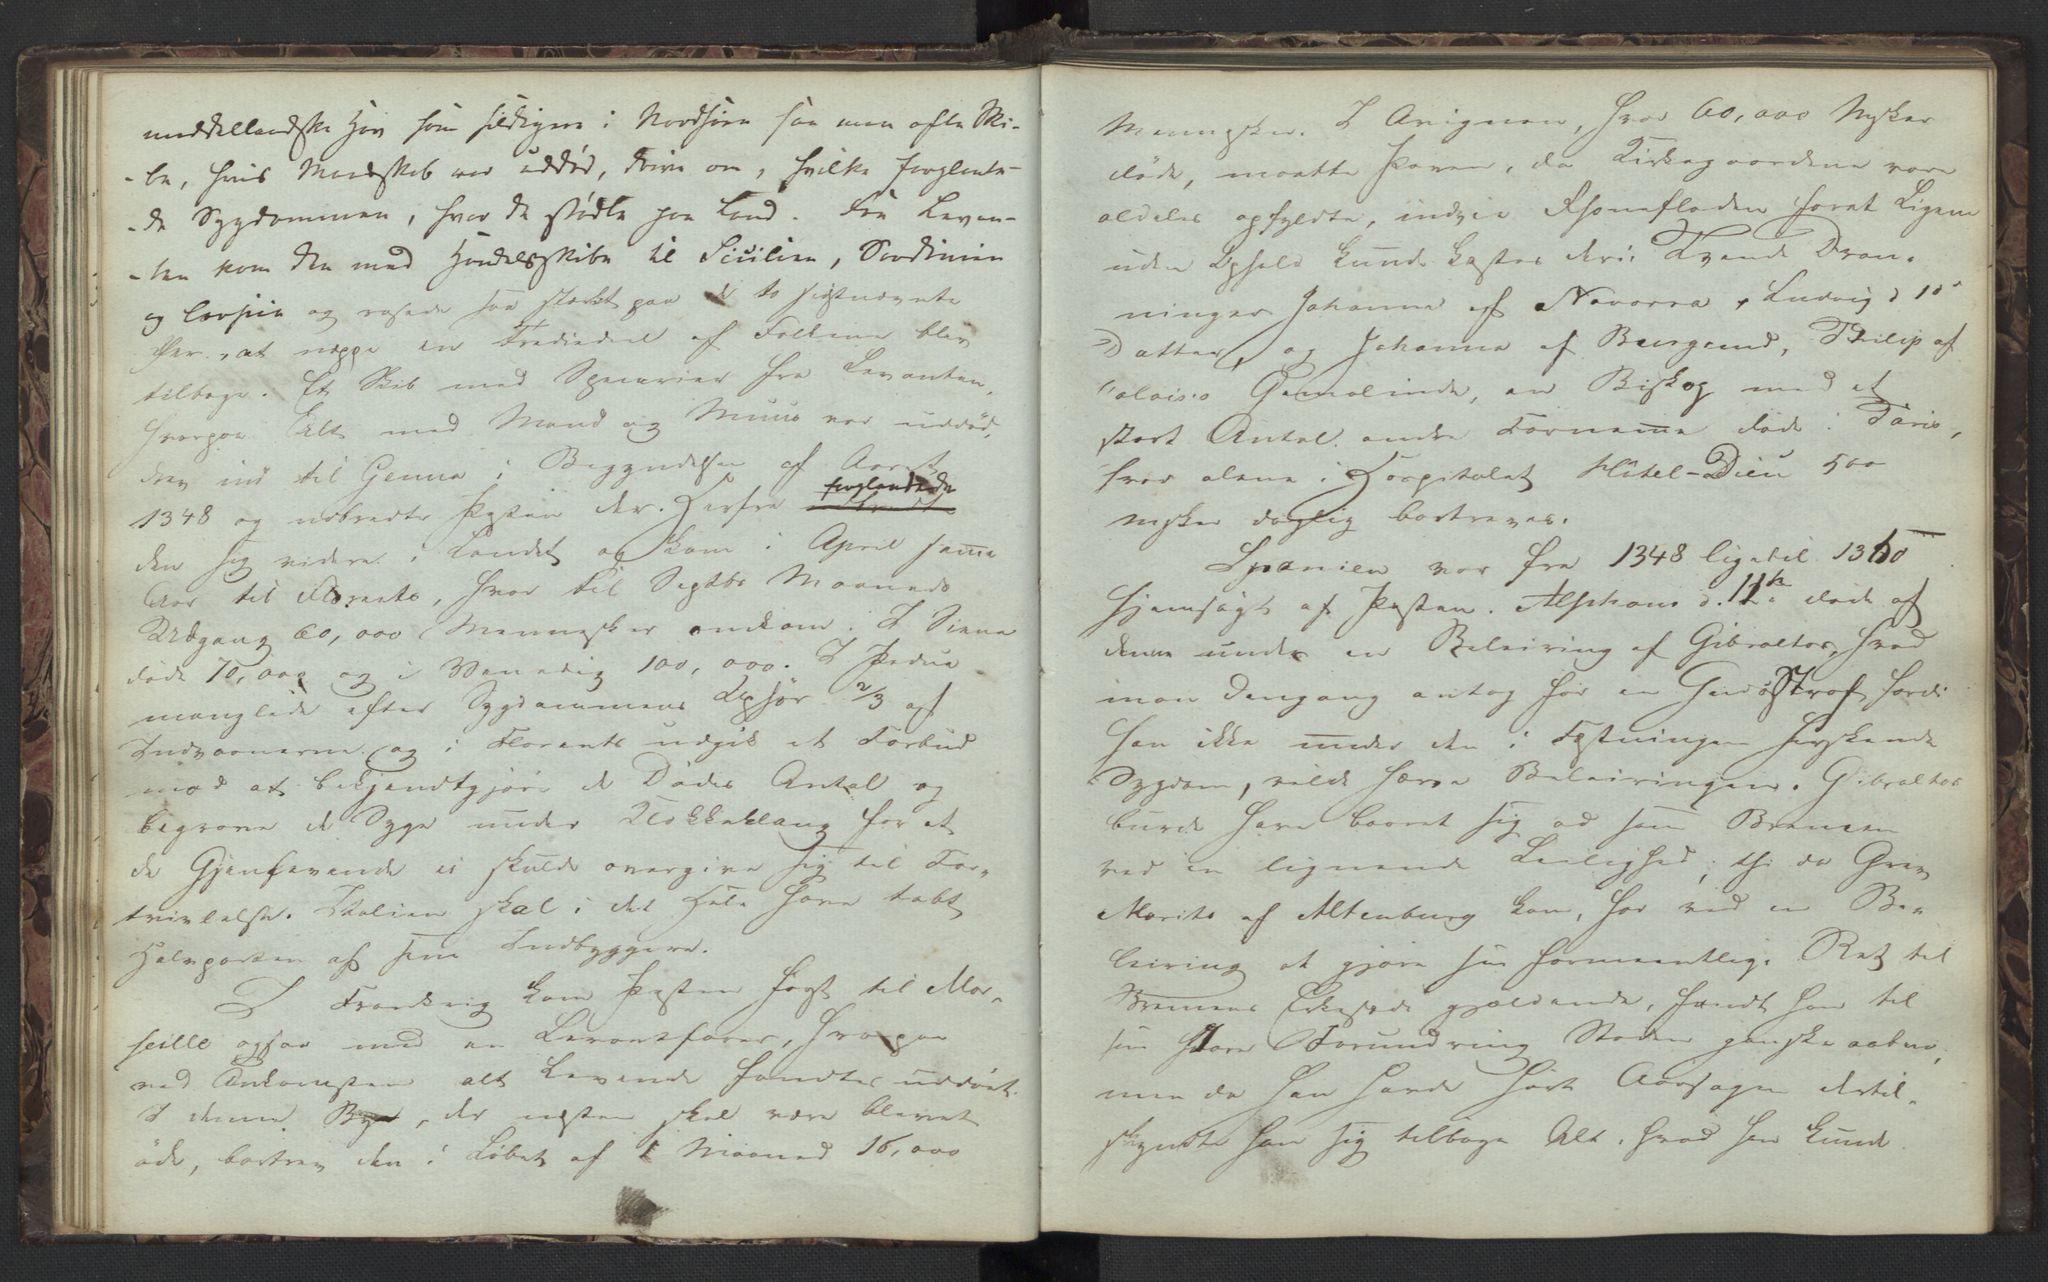 middellandske Hav som sildigere i Nordsöen saa man ofte Ski-
-be, hvis Mandskab var uddöd, drive om, hvilke forplante-
-de Sygdommen, hvor de stödte paa Land. Fra Levan-
-ten kom den med Handelsskibe til Sicilien, Sardinien
og Corsica og rasede saa stærkt paa de to sidstnævnte
Öer, at neppe en Trediedel af Folkene blev
tilbage. Et Skib med Specerier fra Levanten,
hvorpaa Alt med Mand og Muus var uddöd,
drev ind til Genua i Begyndelsen af Aaret
1348 og udbredte Pesten der. Herfra forplantede
den sig videre i Landet og kom i April samme
Aar til Florents, hvor til Septbr Maaneds
Udgang 60,000 Mennesker omkom. I Siena
döde 70,000 og i Venedig 100,000. I Padua
manglede efter Sygdommens Ophör 2/3 af
Indvaanerne og i Florents udgik et Forbud
mod at bekjendtgjöre de Dödes Antal og
begrave de Syge under Klokkeklang for at
de Gjenlevende ei skulde overgive sig til For-
tvivlelse. Italien skal i det Hele have tabt
Halvparten af sine Indbyggere.
I Frankrig kom Pesten först til Mar-
seille ogsaa med en Levantfarer, hvorpaa
ved Ankomsten alt Levende fandtes uddöet.
I denne By, der næsten skal være blevet
öde, bortrev den i Löbet af 1 Maaned 16,000
Mennesker. I Avignon, hvor 60,000 Msker
döde, maatte Paven, da Kirkegaardene vare
aldeles opfyldte, indvie Rhonefloden forat Ligene
uden Ophold kunde kastes deri. Tvende Dron-
ninger Johanna af Navarra, Ludvig d 10s
Datter, og Johanna af Burgund, Philip af
Valois's Gemalinde, en Biskop med et
stort Antal andre Fornemme döde i Paris,
hvor alene i Hospitalet Hôtel-Dieu 500
Msker daglig bortreves.
Spanien var fra 1348 ligetil 1350
hjemsögt af Pesten. Alphons d. 11te döde af
denne under en Beleiring af Gibraltar, hvad
man dengang antog for en Guds Straf fordi
han ikke under den i Fæstningen herskende
Sygdom, vilde hæve Beleiringen. Gibraltar
burde have baaret sig ad som Bremen
ved en lignende Leilighed; thi da Grev
Moritz af Altenburg kom, for ved en Be-
leiring at gjöre sin formeentlige Ret til
Bremens Erkesæde gjældende, fandt han til
sin store Forundring Staden ganske aaben,
men da han havde hört Aarsagen dertil,
skyndte han sig tilbage Alt, hvad han kunde